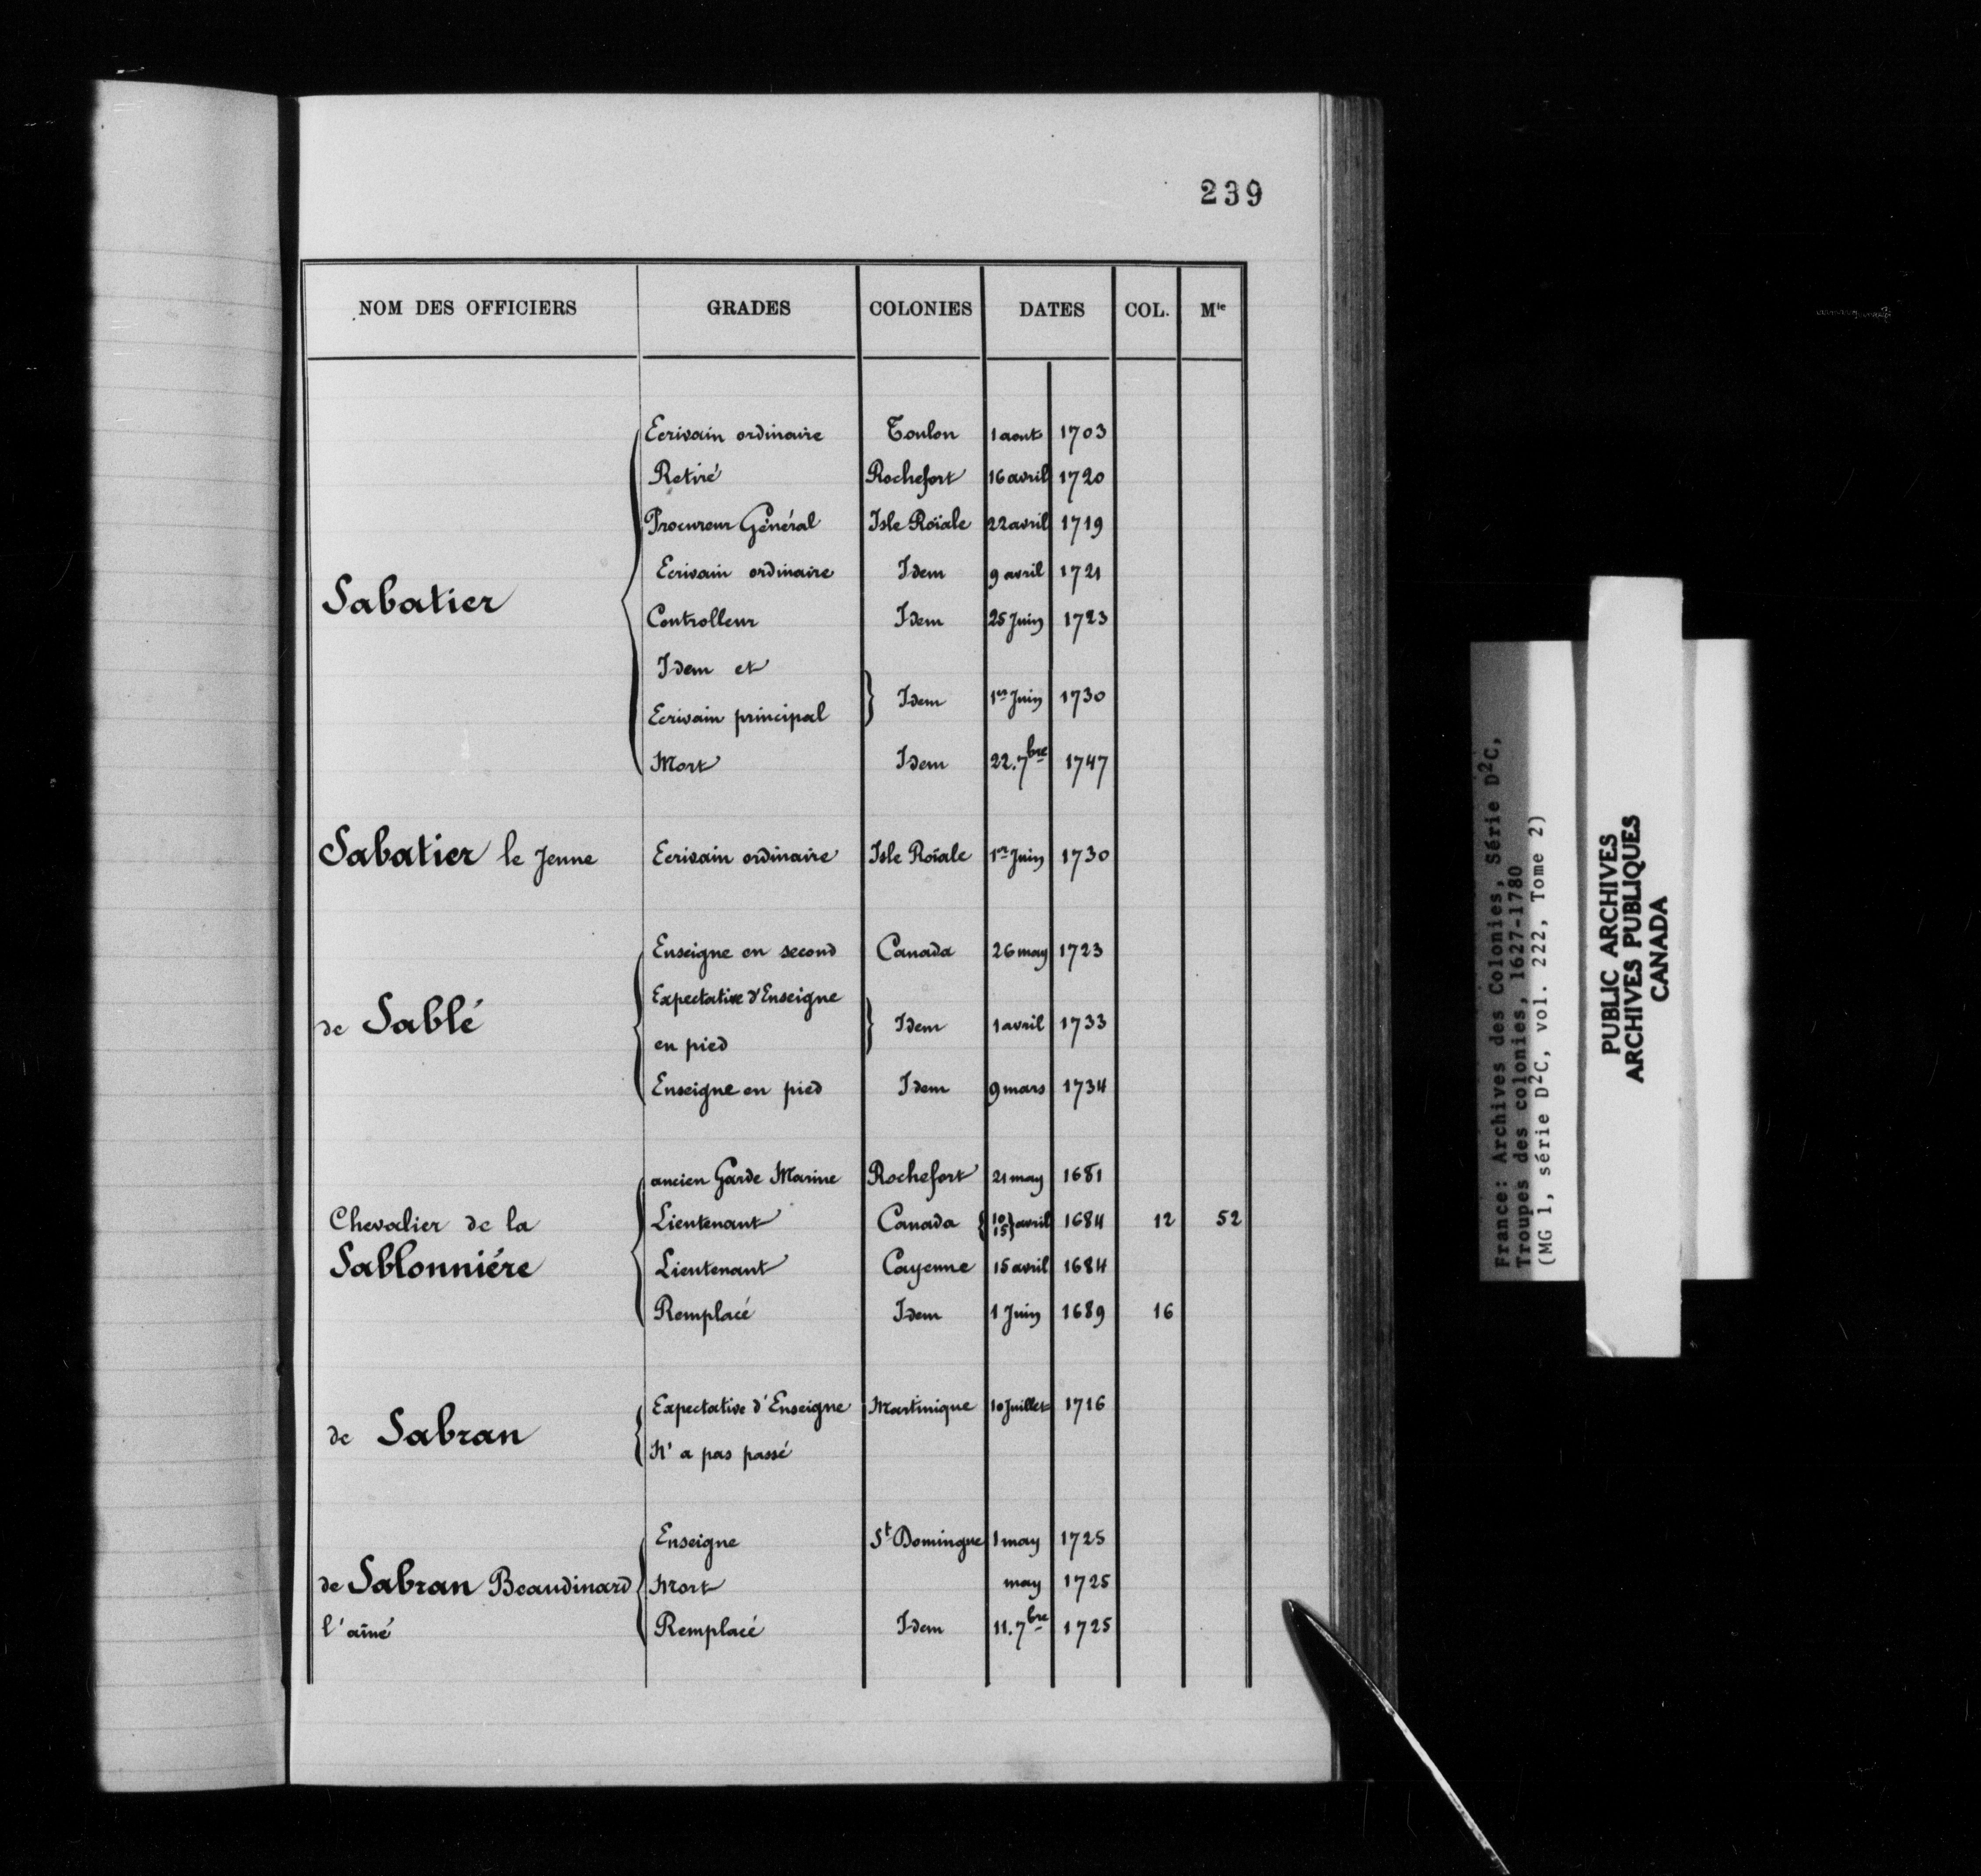 239
NOM DES OFFICIERS GRADES COLONIES DATES COL. Mle
Ecrivain ordinaire Toulon 1 aout 1703
Retiré Rochefort 16 avril 1720
Procureur Général Isle Roïale 22 avril 1719
Ecrivain ordinaire Idem 9 avril 1721
Sabatier
Controlleur Idem 25 Juin 1723
Idem et
Idem 1er Juin 1730
Ecrivain principal
Mort Idem 22. 7bre 1747
Sabatier le Jeune Ecrivain ordinaire Isle Roïale 1er Juin 1730
Enseigne en second Canada 26 may 1723
Expectative d'Enseigne
de Sablé Idem 1 avril 1733
en pied
Enseigne en pied Idem 9 mars 1734
ancien Garde Marine Rochefort 21 may 1681
Chevalier de la Lieutenant Canada { 10 15 } avril 1684 12 52
Sablonniére Lieutenant Cayenne 15 avril 1684
Remplacé Idem 1 Juin 1689 16
Expectative d'Enseigne Martinique 10 Juillet 1716
de Sabran
N'a pas passé
Enseigne St Domingue 1 may 1725
de Sabran Beaudinard Mort may 1725
l'aîné Remplacé Idem 11. 7bre 1725
France: Archives des Colonies, Série D2C,
Troupes des colonies, 1627-1780
(MG 1, série D2C, vol. 222, Tome 2)
PUBLIC ARCHIVES
ARCHIVES PUBLIQUES
CANADA